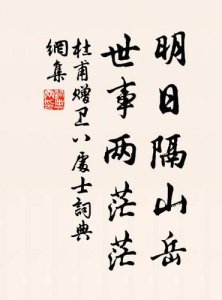 明日隔山岳
世事两茫茫
杜甫赠卫八处士词典
網集